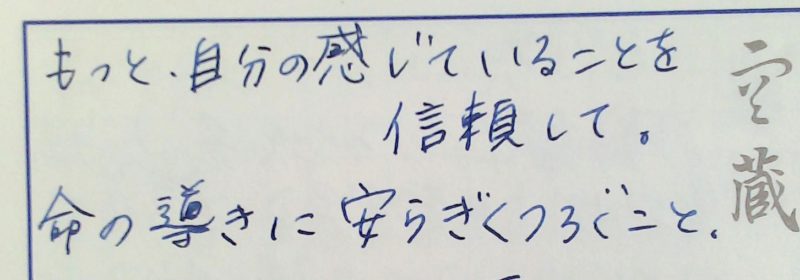 もっと、自分の感じていることを
信頼して。
命の導きに安らぎくつろぐこと、
空蔵